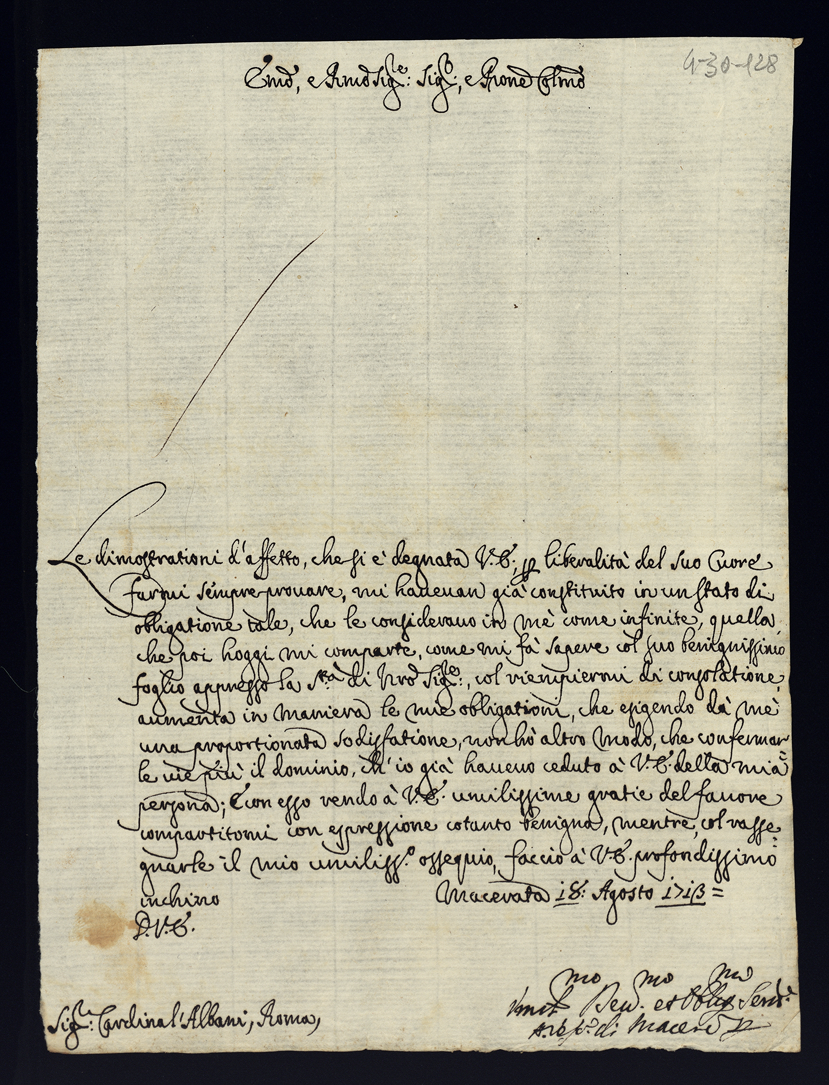 4-30-128
Emō, e Rmō Sig.re: Sig.r, e Prone Colmō
Le dimostrationi d'affetto, che si è degnata V.E. p liberalità del suo Cuore
farmi sempre provare, mi haueuan già constituito in un stato di
obligatione tale, che le consideravo in mè come infinite, quella
che poi hoggi mi comparte, come mi fà sapere col suo benignissimo
foglio appresso la S.tà di Nrō Sig.re, col riempiermi di consolatione,
aumenta in maniera le mie obligationi, che esigendo dà mè
una proportionata sodisfatione, non hò altro modo, che confermar=
le uie più il dominio, ch'io già haueuo ceduto à V.E. della mia
persona; E con esso rendo à V.E. umilissime gratie del fauore
compartitomi con espressione cotanto benigna, mentre, col rasse=
gnarle il mio umiliss.o ossequio, faccio à V.E. profondissimo
inchino Macerata 18: Agosto 1713=
D.V.E.
Sig.re Cardinal'Albani, Roma,
mo mo mo
Umil Dev. et Oblig Serv.e
di Macera